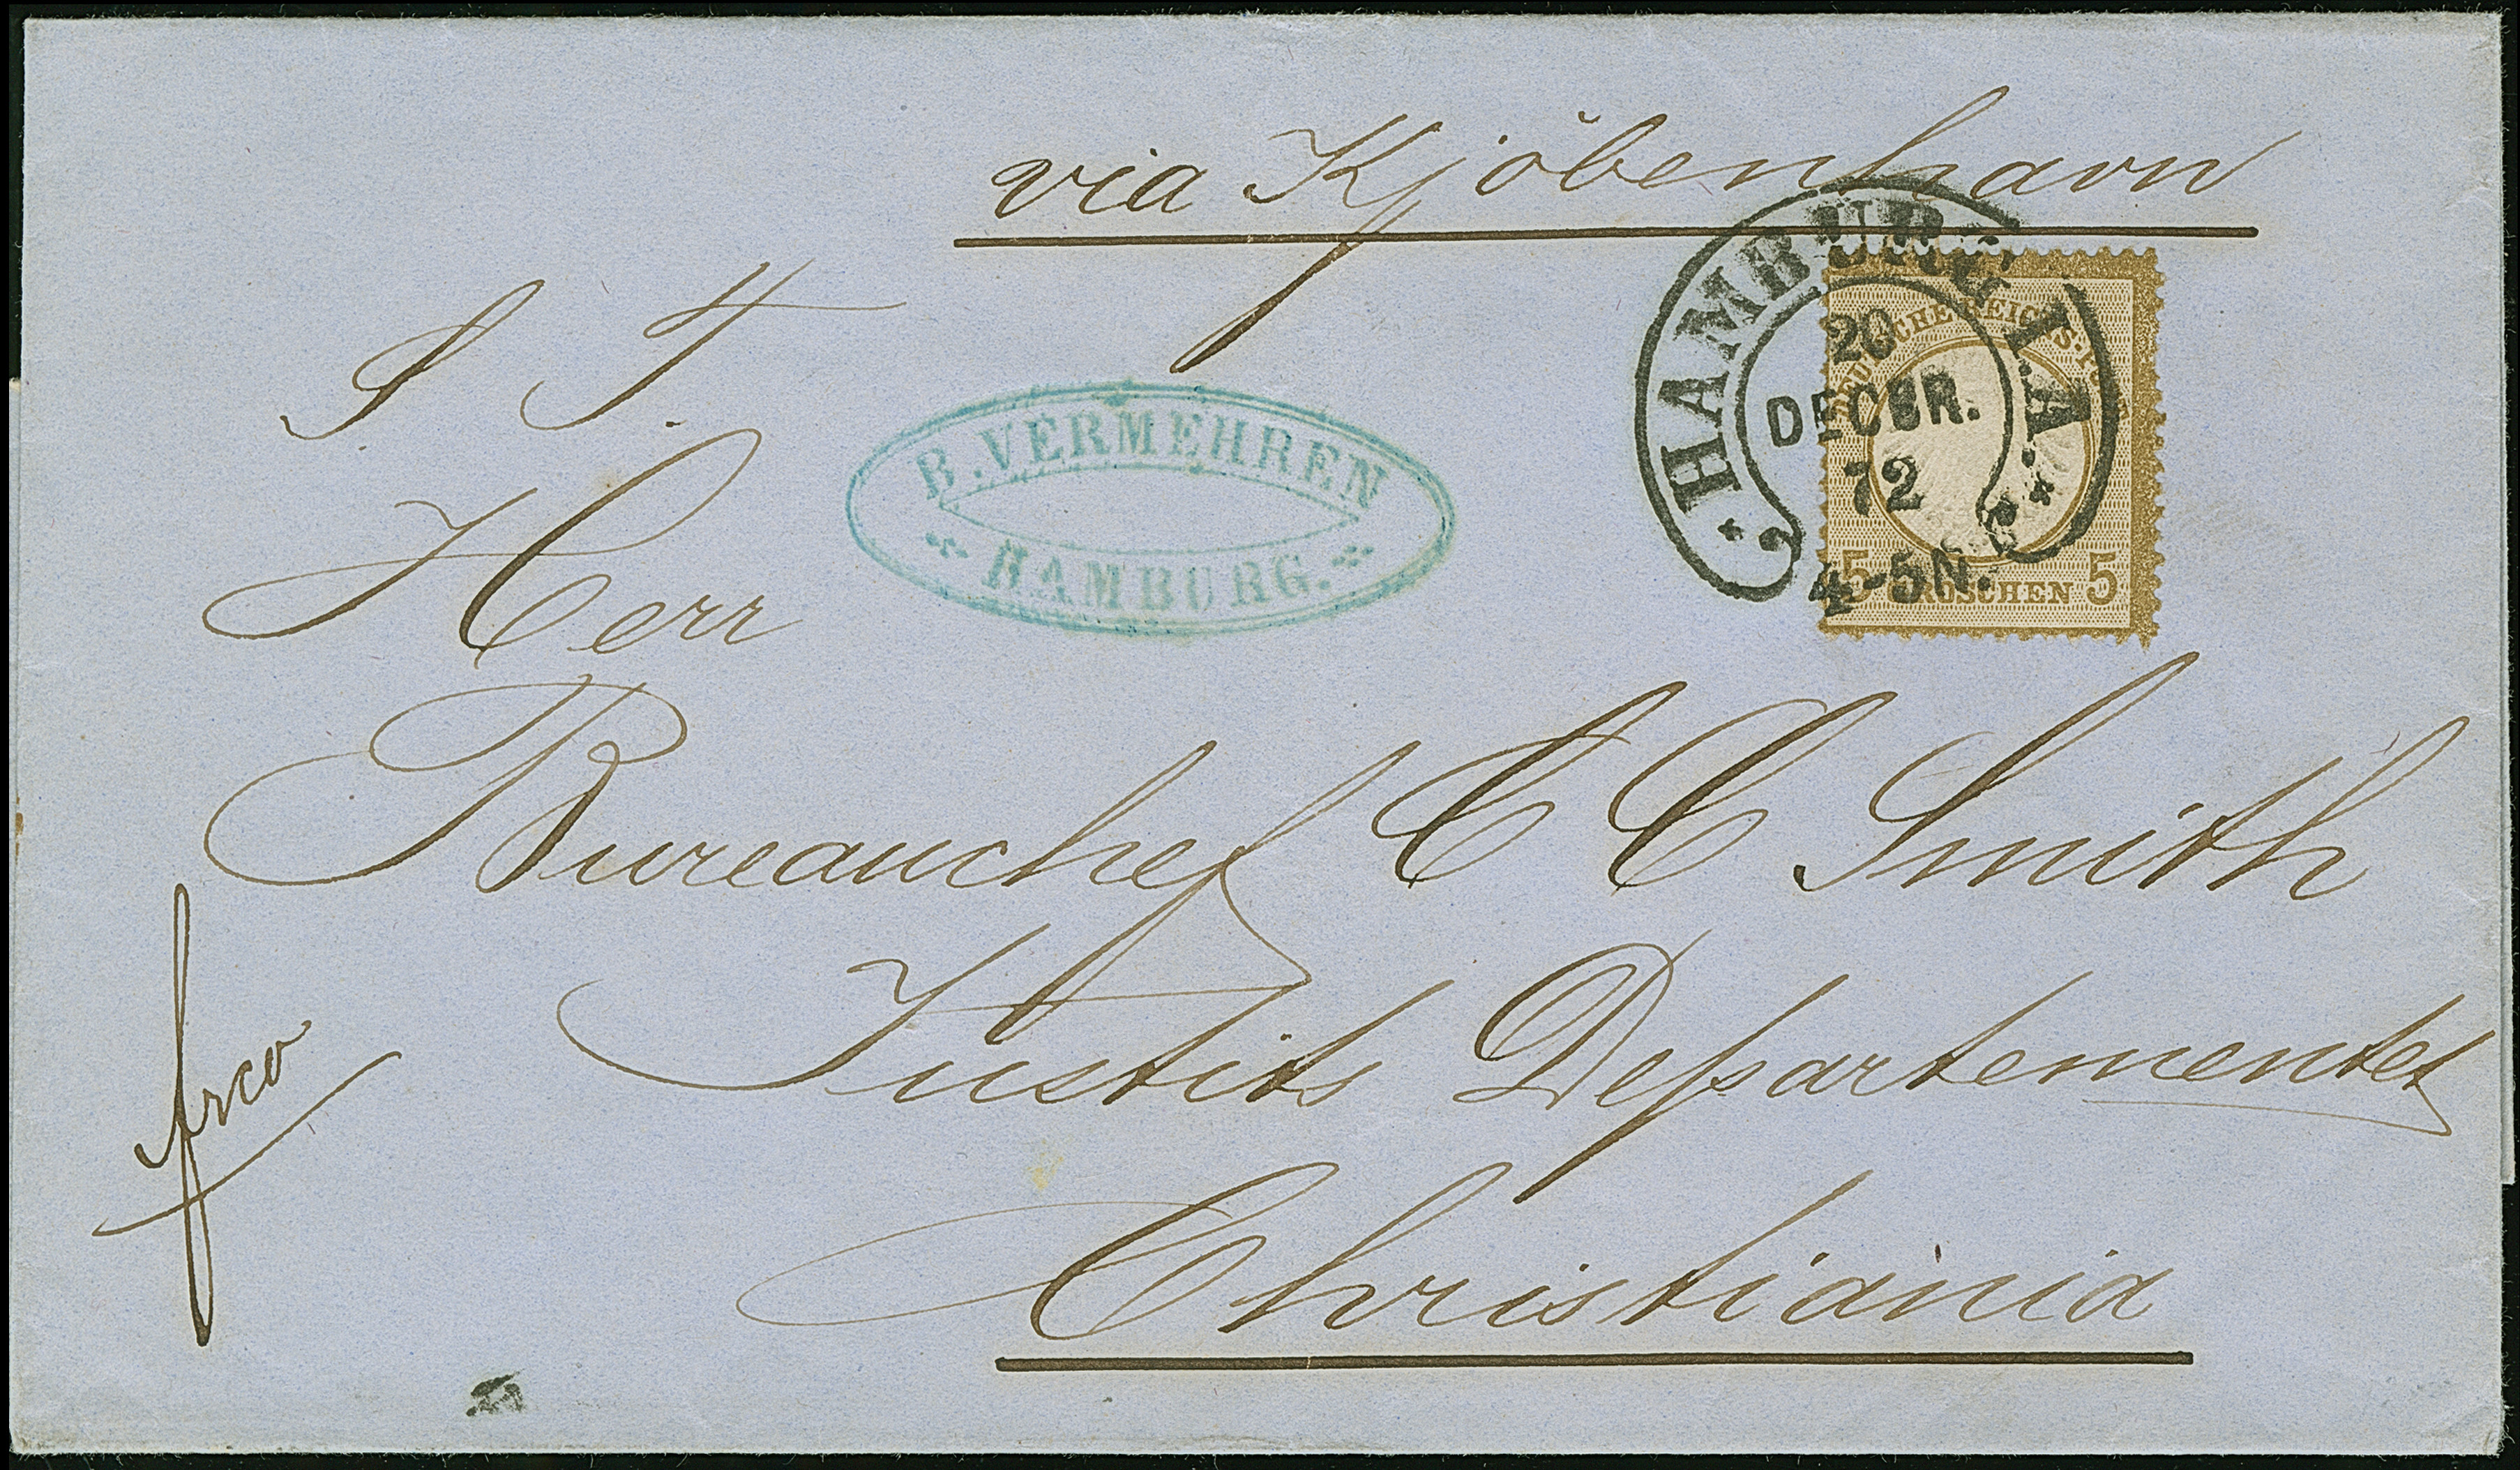 via Kjöbenhavn
S. T.
Herr
Bureauchef C C Smith
Justits Departementet
Christiania
frco
B. VERMEHREN
HAMBURG.
HAMBURG I.A.
20
DECBR.
72
4-5N.
DEUTSCHE REICHS-POST
5 GROSCHEN 5